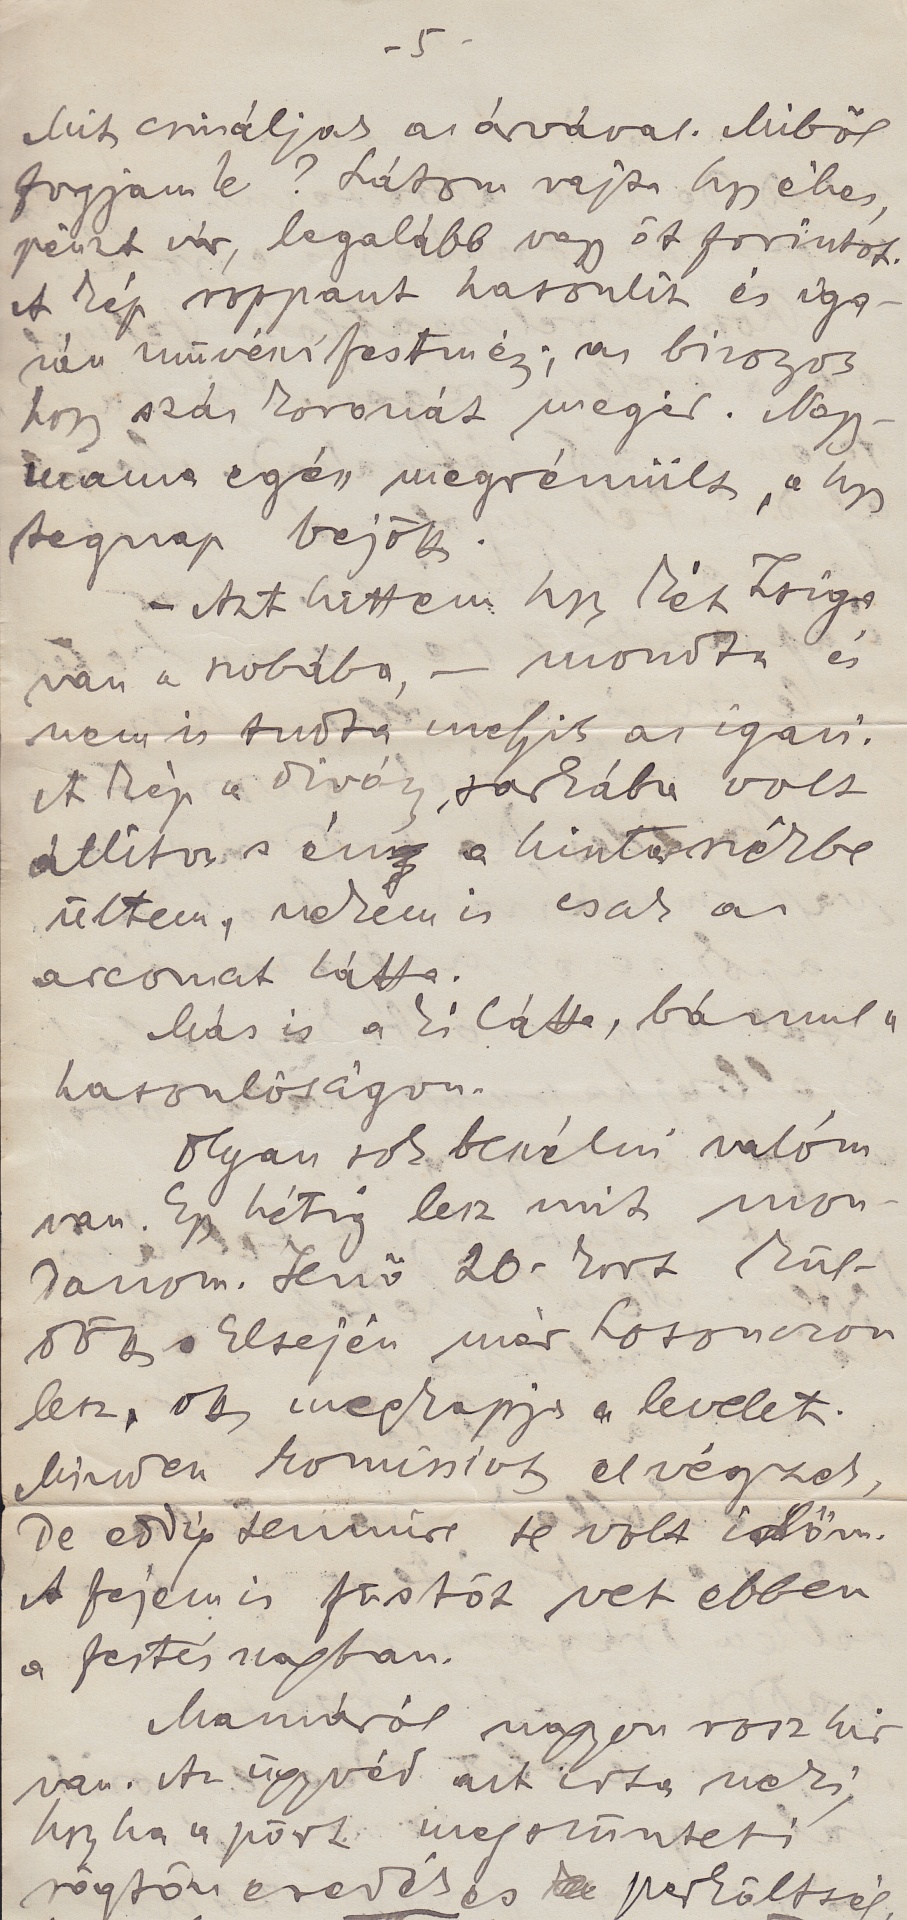 - 5 -
Mit csináljak az árvával. Miből
fogjam le? Látom rajta hgy éhes,
pénzt vár, legalább vagy öt forintot.
A kép roppant hasonlit és iga-
zán művészi festmény; az bizonyos
hogy száz koronát megér. Nagy-
mama egész megrémült, a hgy
tegnap bejött.
- Azt hittem hgy két Zsiga
van a szobába, - mondta és
nem is tudta melyik az igazi.
A kép a diván sarkába volt
állitva s én a hintaszékbe
ültem, nekem is csak az
arcomat látta.
Más is a ki látta, bámul a
hasonlóságon.
Olyan sok beszélni valóm
van. Egy hétig lesz mit mon-
danom. Jenő 20-kort kül-
dött. Elsején már Losonczon
lesz, ott megkapja a levelet.
Minden komissiót elvégzek,
de eddig semmire se volt időm.
A fejem is füstöt vet ebben
a festés nagban.
Mamáról nagyon rosz hir
van. Az ügyvéd azt irta neki,
hgy ha a pört megszünteti
rögtön esedékes perköltség,